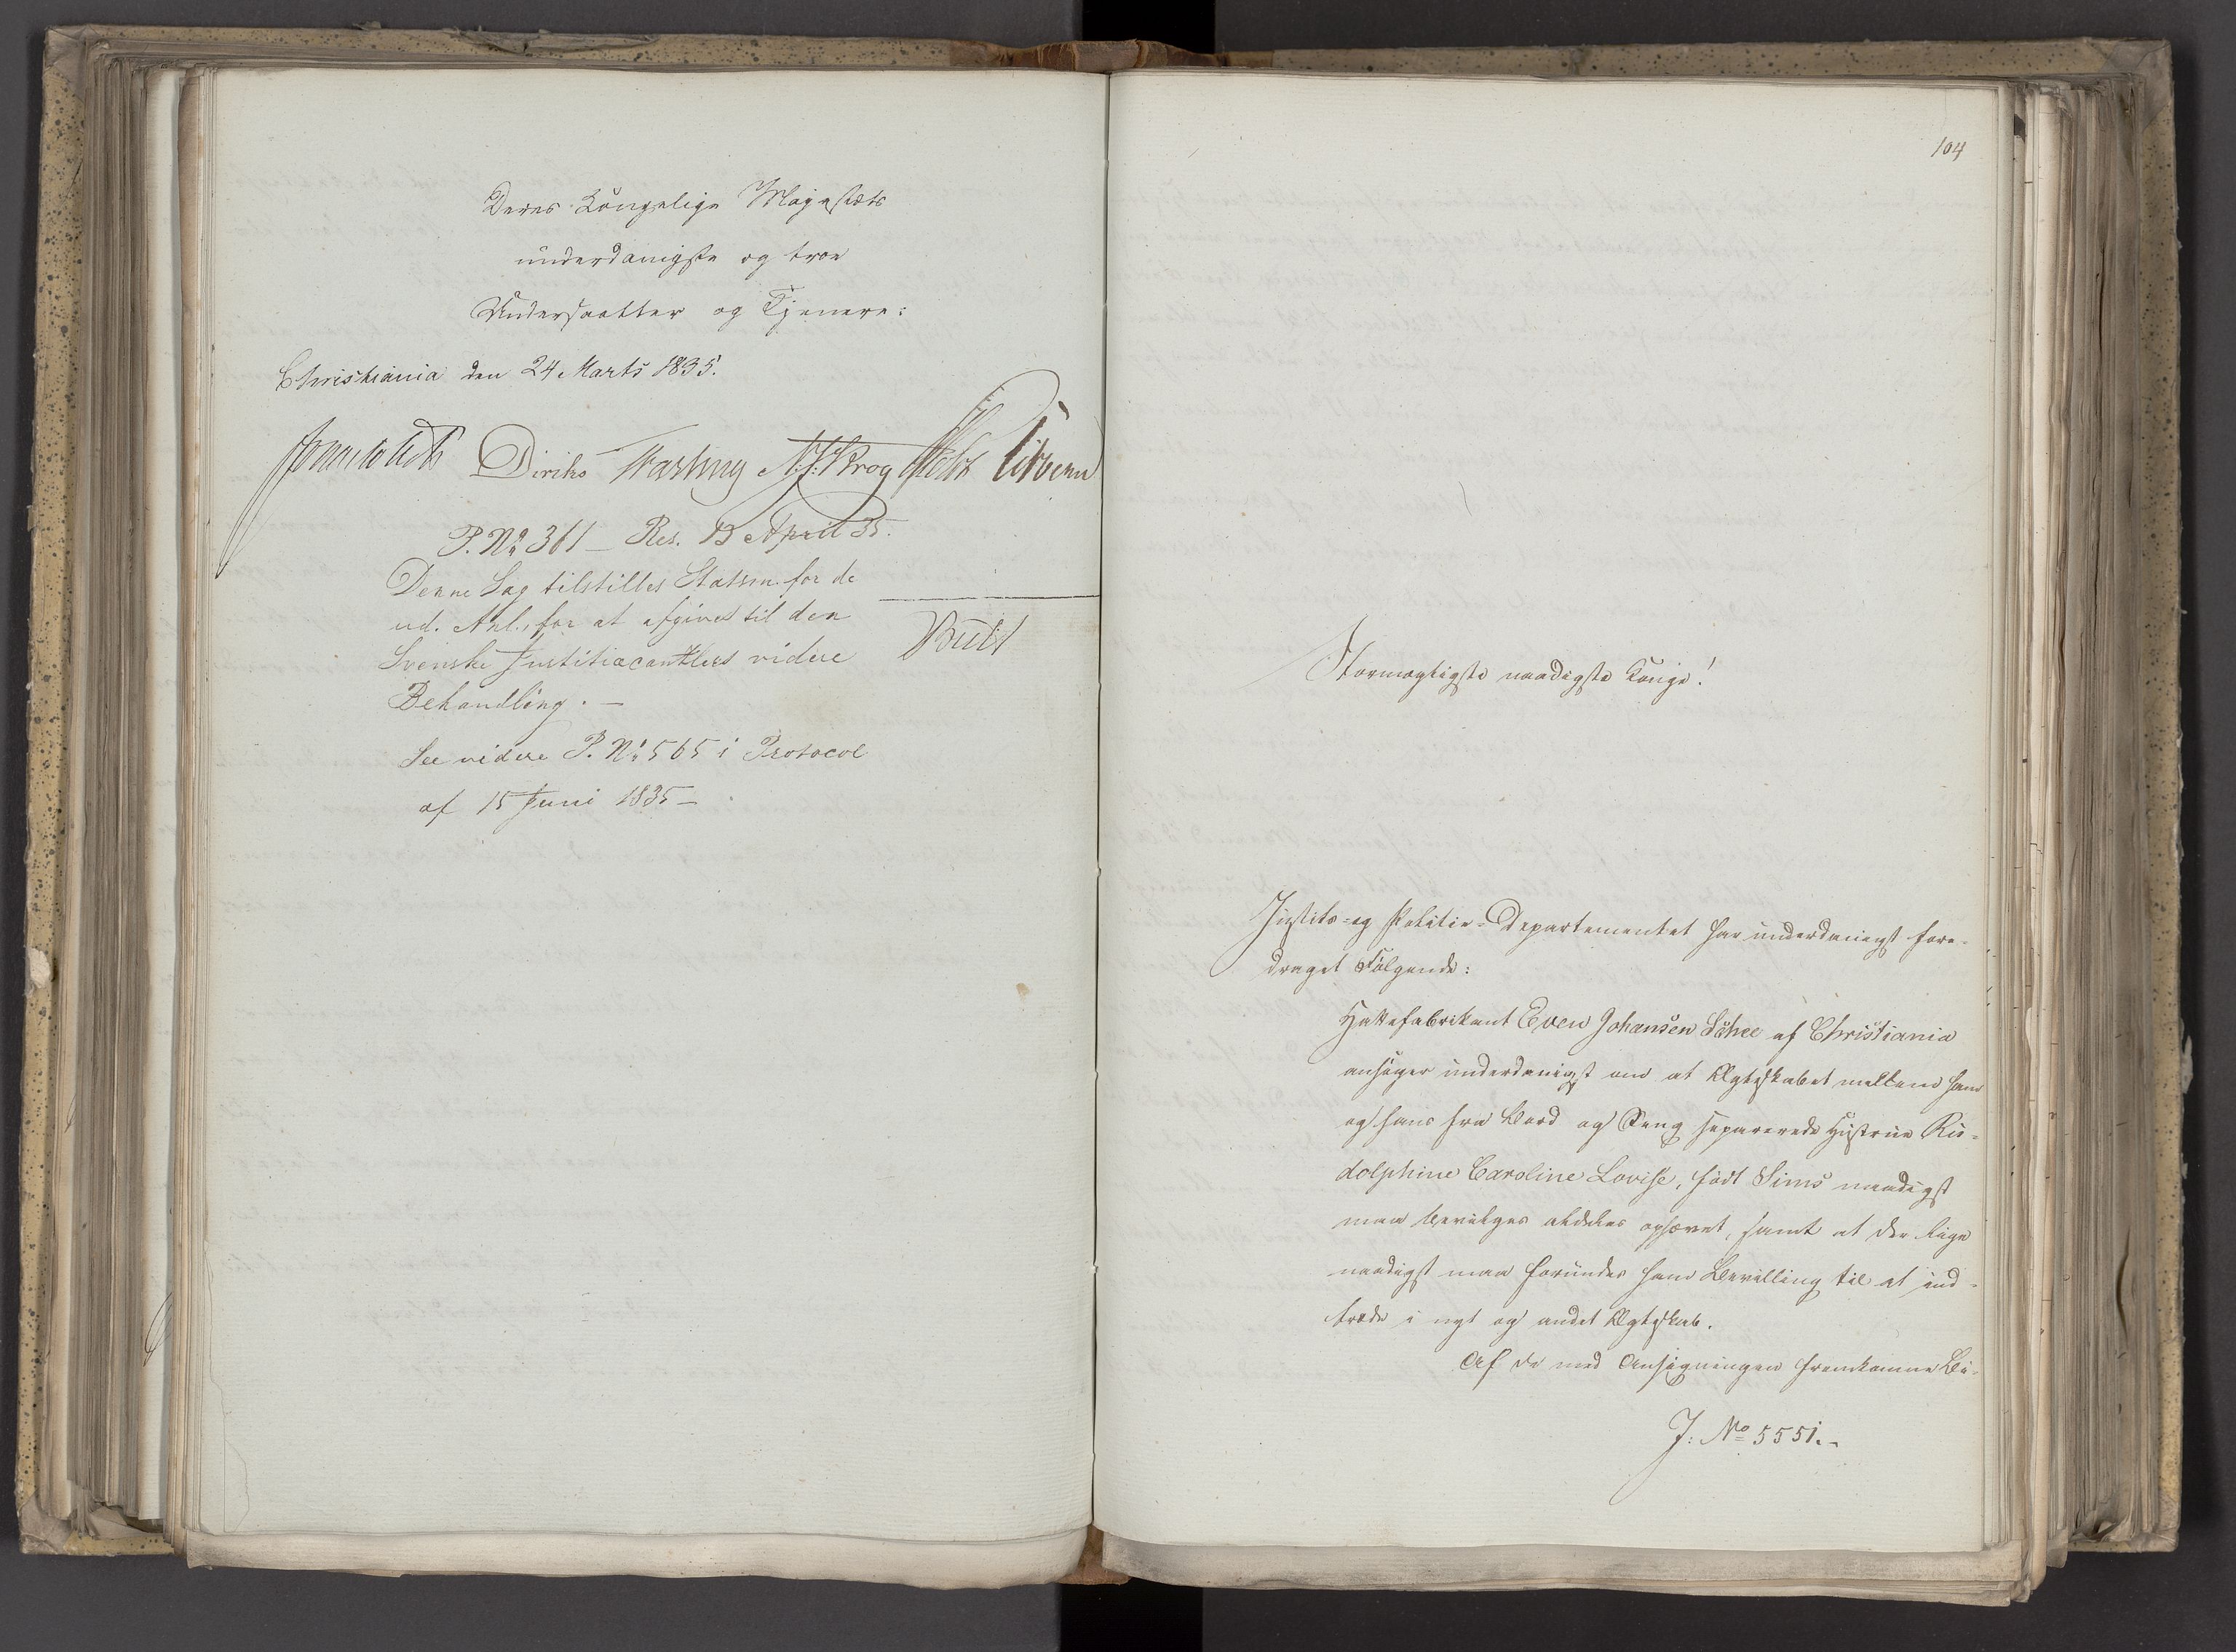 Deres Kongelige Majestæts
underdanigste og troe
Undersaatter og Tjenere:
Christiania den 24 Marts 1835.
Diriks Krog
P. No 361 – Res. 13 April 35.
Denne Sag tilstilles Statsm. for de
ud. Anl., for at afgives til den
Svenske Justitiæcantzlers videre
Behandling. –
See videre P. No 565 i Protocol
af 15 Juni 1835 –
104
Stormægtigste naadigste Konge!
Justits- og Politie-Departementet har underdanigst fore-
draget Følgende:
Hattefabrikant Even Johansen af Christiania
ansøger underdanigst om at Ægteskabet mellem ham
og hans fra Bord og Seng separerede Hustrue Ru-
dolphine Caroline Lovise, født Sims naadigst
maa bevilges aldeles ophævet, samt at der lige
naadigst maa forundes ham Bevilling til at ind-
træde i nyt og andet Ægteskab.
Af de med Ansøgningen fremkomne Bi-
J: No 5551. -